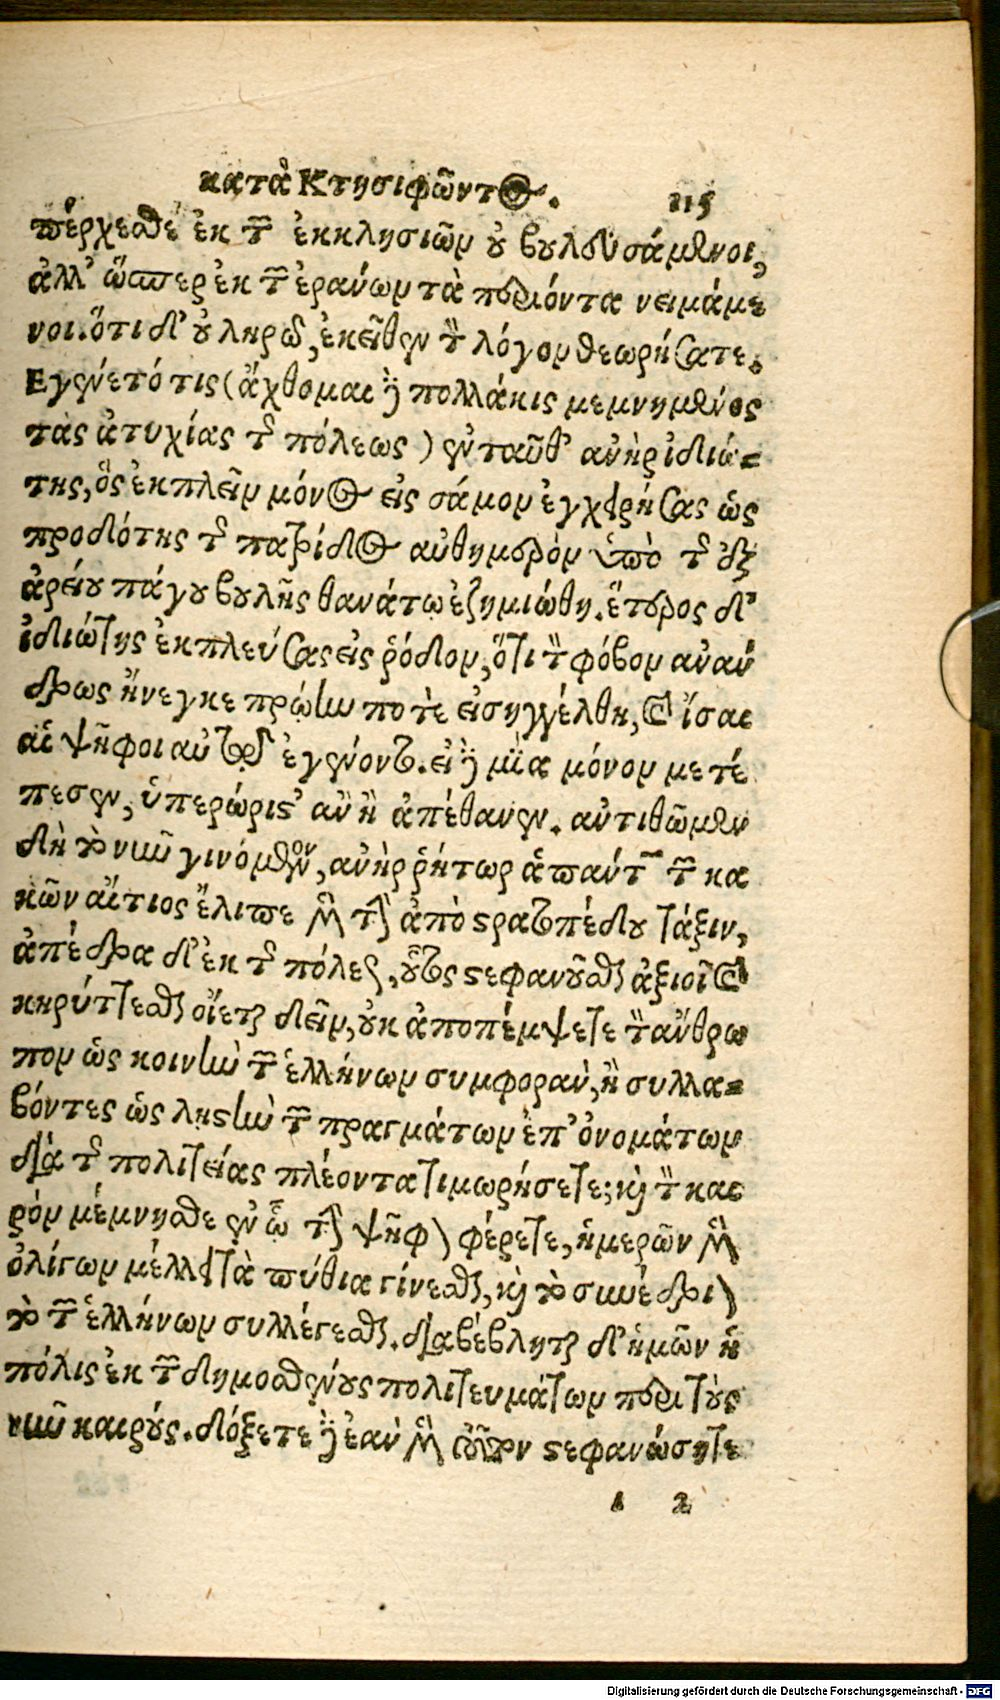 κατὰ Κτησιφῶντος. 115
πέρχεσθε ἐκ τῶν ἐκκλησιῶν οὐ βουλευσάμενοι,
ἀλλ' ὥσπερ ἐκ τῶν ἐράνων τὰ περιόντα νειμάμε
νοι. ὅτι δ' οὐ ληρῶ, ἐκεῖθεν τὸν λόγον θεωρήσατε.
Εγένετό τις (ἄχθομαι δὲ πολλάκις μεμνημένος
τὰς ἀτυχίας τῆς πόλεως) ἐνταῦθ' ἀνὴρ ἰδιώ=
της, ὃς ἐκπλεῖν μόνος εἰς σάμον ἐγχειρήσας ὡς
προδότης τῆς πατρίδος αὐθημερὸν ὑπὸ τῆς ἐξ
ἀρείου πάγου βουλῆς θανάτῳ ἐζημιώθη. ἕτερος δ'
ἰδιώτης ἐκπλεύσας εἰς ῥόδον, ὅτι τὸν φόβον ἀνάν
δρως ἤνεγκε πρώην ποτὲ εἰσηγγέλθη, καὶ ἴσαι
αἱ ψῆφοι αὐτῷ ἐγένοντο. εἰ δὲ μία μόνον μετέ
πεσεν, ὑπερώριστ' ἂν ἢ ἀπέθανεν. ἀντιθῶμεν
δὴ τὸ νῦν γινόμενον, ἀνὴρ ῥήτωρ ἁπάντων τῶν κα
κῶν αἴτιος ἔλιπε μὲν τὴν ἀπὸ στρατοπέδου τάξιν,
ἀπέδρα δ' ἐκ τῆς πόλεως, οὗτος στεφανοῦσθαι ἀξιοῖ καὶ
κηρύττεσθαι οἴεται δεῖν, οὐκ ἀποπέμψετε τὸν ἄνθρω
πον ὡς κοινὴν τῶν ἑλλήνων συμφοράν, ἢ συλλα=
βόντες ὡς λῃστὴν τῶν πραγμάτων ἐπ' ὀνομάτων
διὰ τῆς πολιτείας πλέοντα τιμωρήσετε; καὶ τὸν και
ρὸν μέμνησθε ἐν ᾧ τὴν ψῆφον φέρετε, ἡμερῶν μὲν
ὀλίγων μέλλει τὰ πύθια γίνεσθαι, καὶ τὸ συνέδριον
τὸ τῶν ἑλλήνων συλλέγεσθαι. διαβέβληται δ' ἡμῶν ἡ
πόλις ἐκ τῶν δημοσθένους πολιτευμάτων περὶ τοὺς
νῦν καιρούς. δόξετε δὲ ἐὰν μὲν τοῦτον στεφανώσητε
1 2
Digitalisierung gefördert durch die Deutsche Forschungsgemeinschaft - DFG